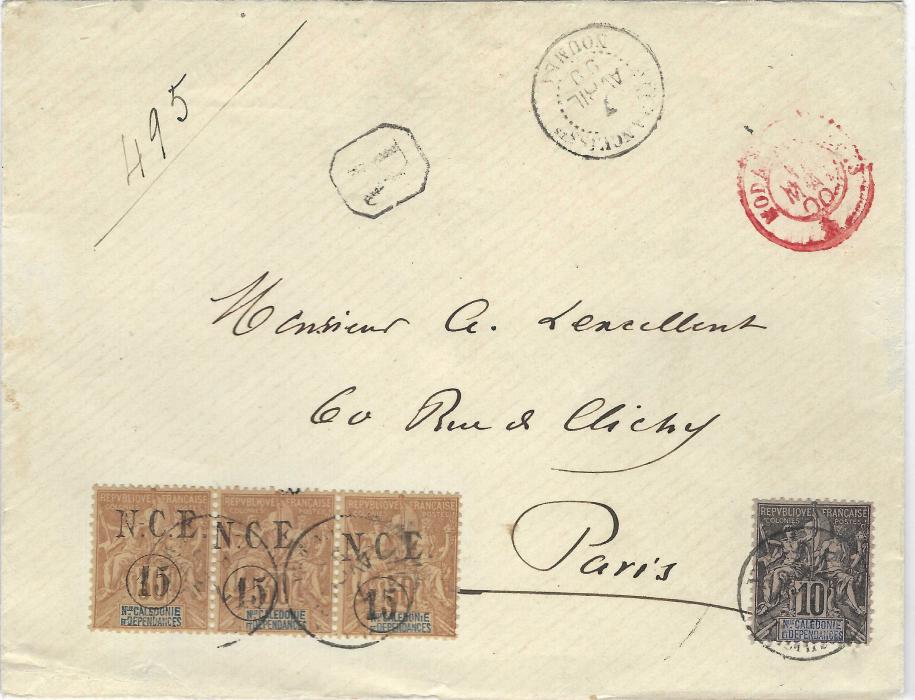 495
R
NOUMEA
7
AVRIL
00
MODA
Monsieur A. Lexcellent
60 Rue de Clichy
Paris
REPVBLIQVE FRANÇAISE
COLONIES POSTES
N.C.E.
15
Nlle CALEDONIE
ET DÉPENDANCES
REPVBLIQVE FRANÇAISE
N.C.E.
15
Nlle CALEDONIE
ET DÉPENDANCES
REPVBLIQVE FRANÇAISE
POSTES
N.C.E.
15
Nlle CALEDONIE
ET DÉPENDANCES
REPVBLIQVE FRANÇAISE
COLONIES POSTES
10
Nlle CALEDONIE
ET DÉPENDANCES